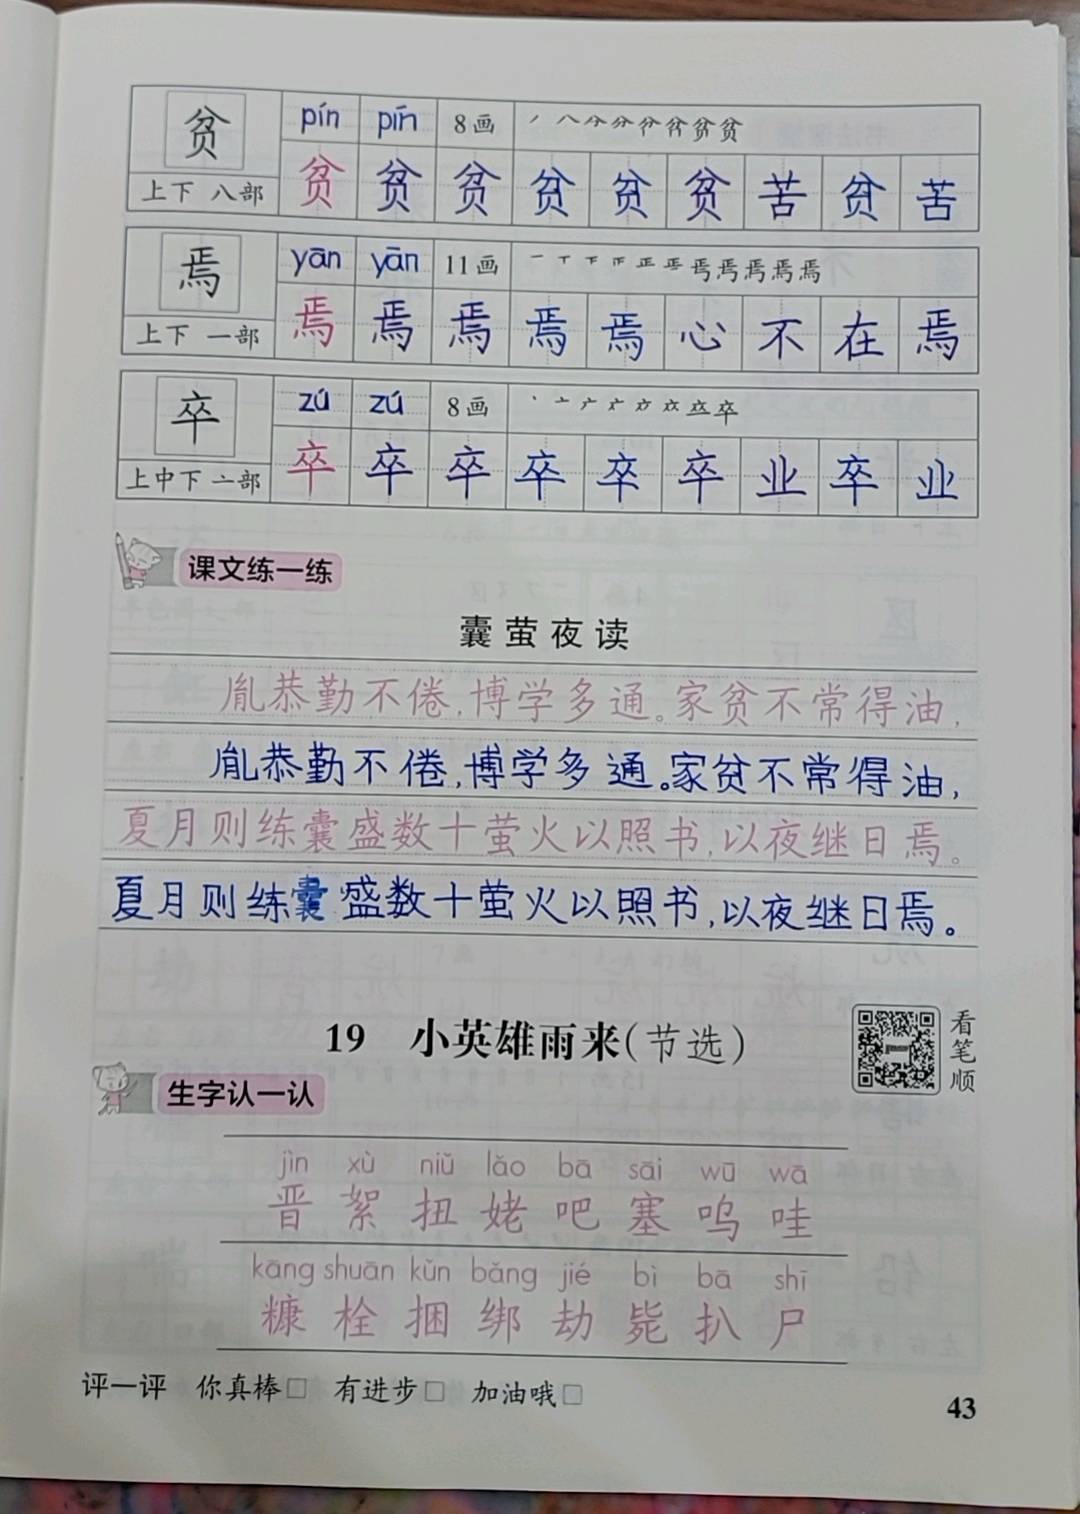 贫 pín pín 8画 丿 八 分 分 贫 贫 贫 贫
上下 八部 贫 贫 贫 贫 贫 贫 苦 贫 苦
焉 yān yān 11画
上下 一部 焉 焉 焉 焉 焉 心 不 在 焉
卒 zú zú 8画
上中下 亠部 卒 卒 卒 卒 卒 卒 业 卒 业
课文练一练
囊萤夜读
胤恭勤不倦,博学多通。家贫不常得油,
胤恭勤不倦,博学多通。家贫不常得油,
夏月则练囊盛数十萤火以照书,以夜继日焉。
夏月则练囊盛数十萤火以照书,以夜继日焉。
19 小英雄雨来(节选)
看笔顺
生字认一认
jìn xù niǔ lǎo bā sāi wū wā
晋 絮 扭 姥 吧 塞 呜 哇
kāng shuān kǔn bǎng jié bì bā shī
糠 栓 捆 绑 劫 毙 扒 尸
评一评 你真棒□ 有进步□ 加油哦□
43